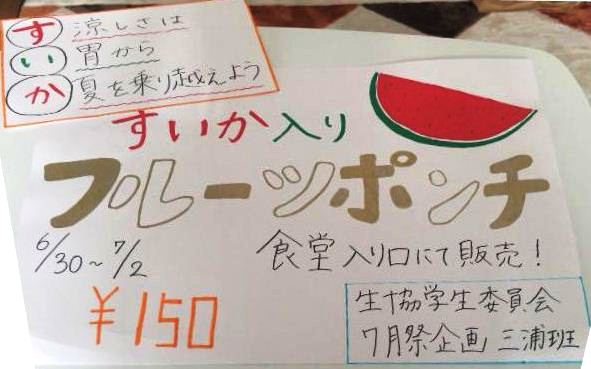 す 涼しさは
い 胃から
か 夏を乗り越えよう
すいか入り
フルーツポンチ
6/30~7/2
食堂入り口にて販売!
¥150
生協学生委員会
7月祭企画 三浦班